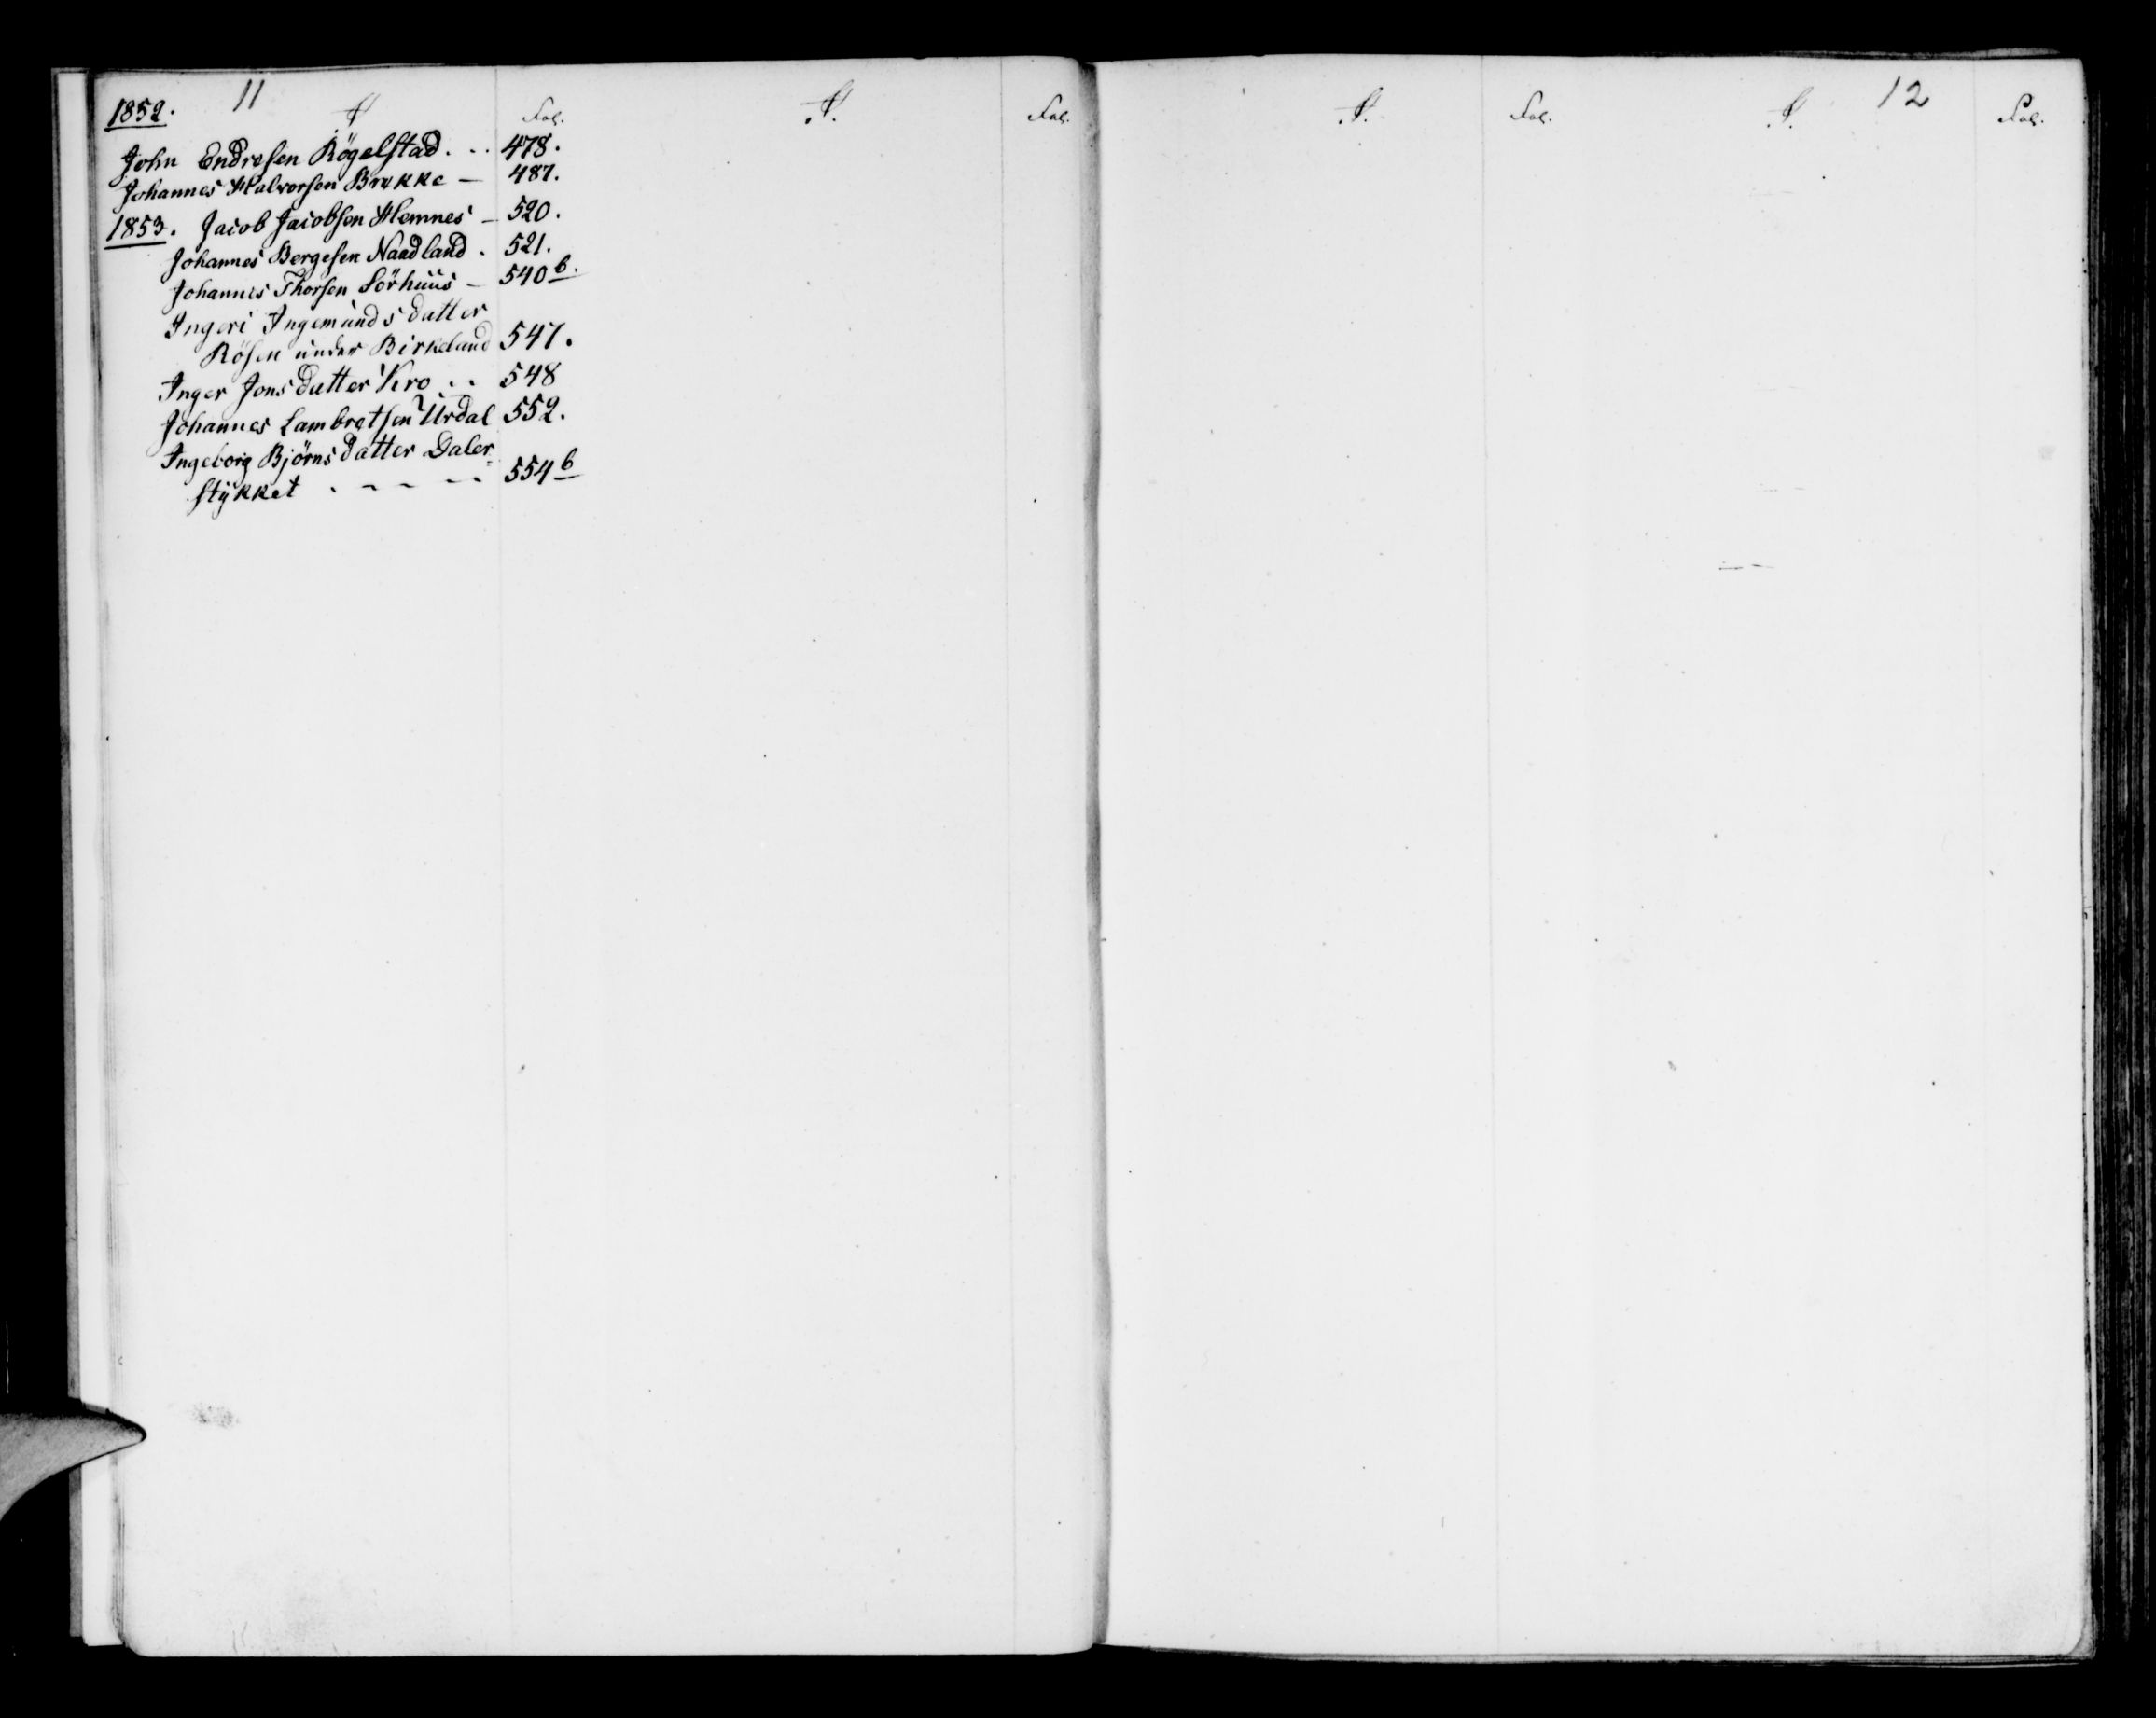 11
1852. J Fol. J. Fol.
John Endresen Rögelstad . .. 478.
Johannes Halvorsen Brekke — 487.
1853. Jacob Jacobsen Hemnes — 520.
Johannes Bergesen Naadland . 521.
Johannes Thorsen Sörhuus — 540 b.
Ingeri Ingemunds datter
Rösen under Birkeland 547.
Inger Jons datter Kro . . 548
Johannes Lambretsen Urdal 552.
Ingeborg Björns datter Daler=
stykket . - - - - - 554 b
12
J. Fol. J. Fol.